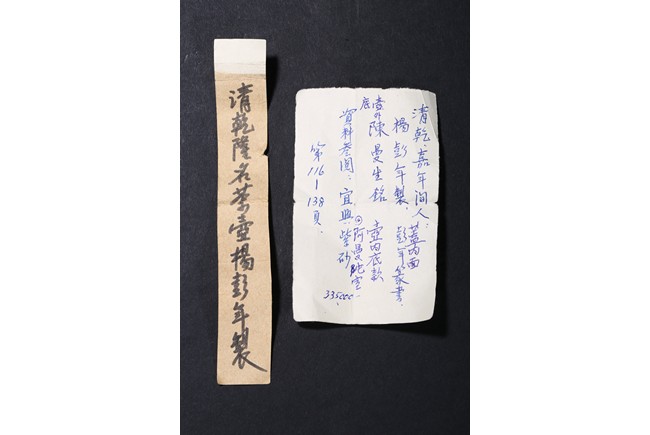 清乾隆名茶壺楊彭年製
清乾、嘉年间人：
蓋内面
楊彭年製.
彭年篆書.
壺外底
陳曼生銘
壺内底款
阿曼陀室.
資料参閱：宜興紫砂
第116-138頁.
335000.